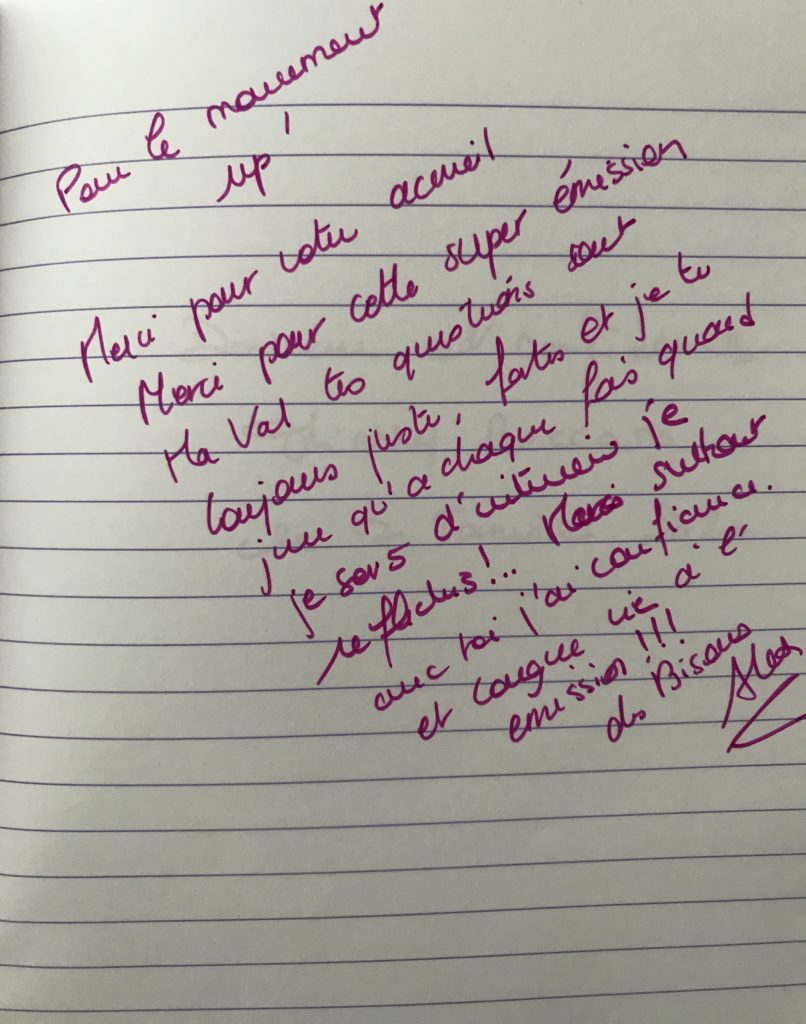 Pour le mouvement
up'
Merci pour votre accueil
Merci pour cette super émission
Ma Val tes questions sont
toujours juste, fortes et je te
jure qu'a chaque fois quand
je sors d'interview je
reflechis!.. Merci surtout
avec toi j'ai confiance.
et longue vie à l'
emission!!!
des Bisous